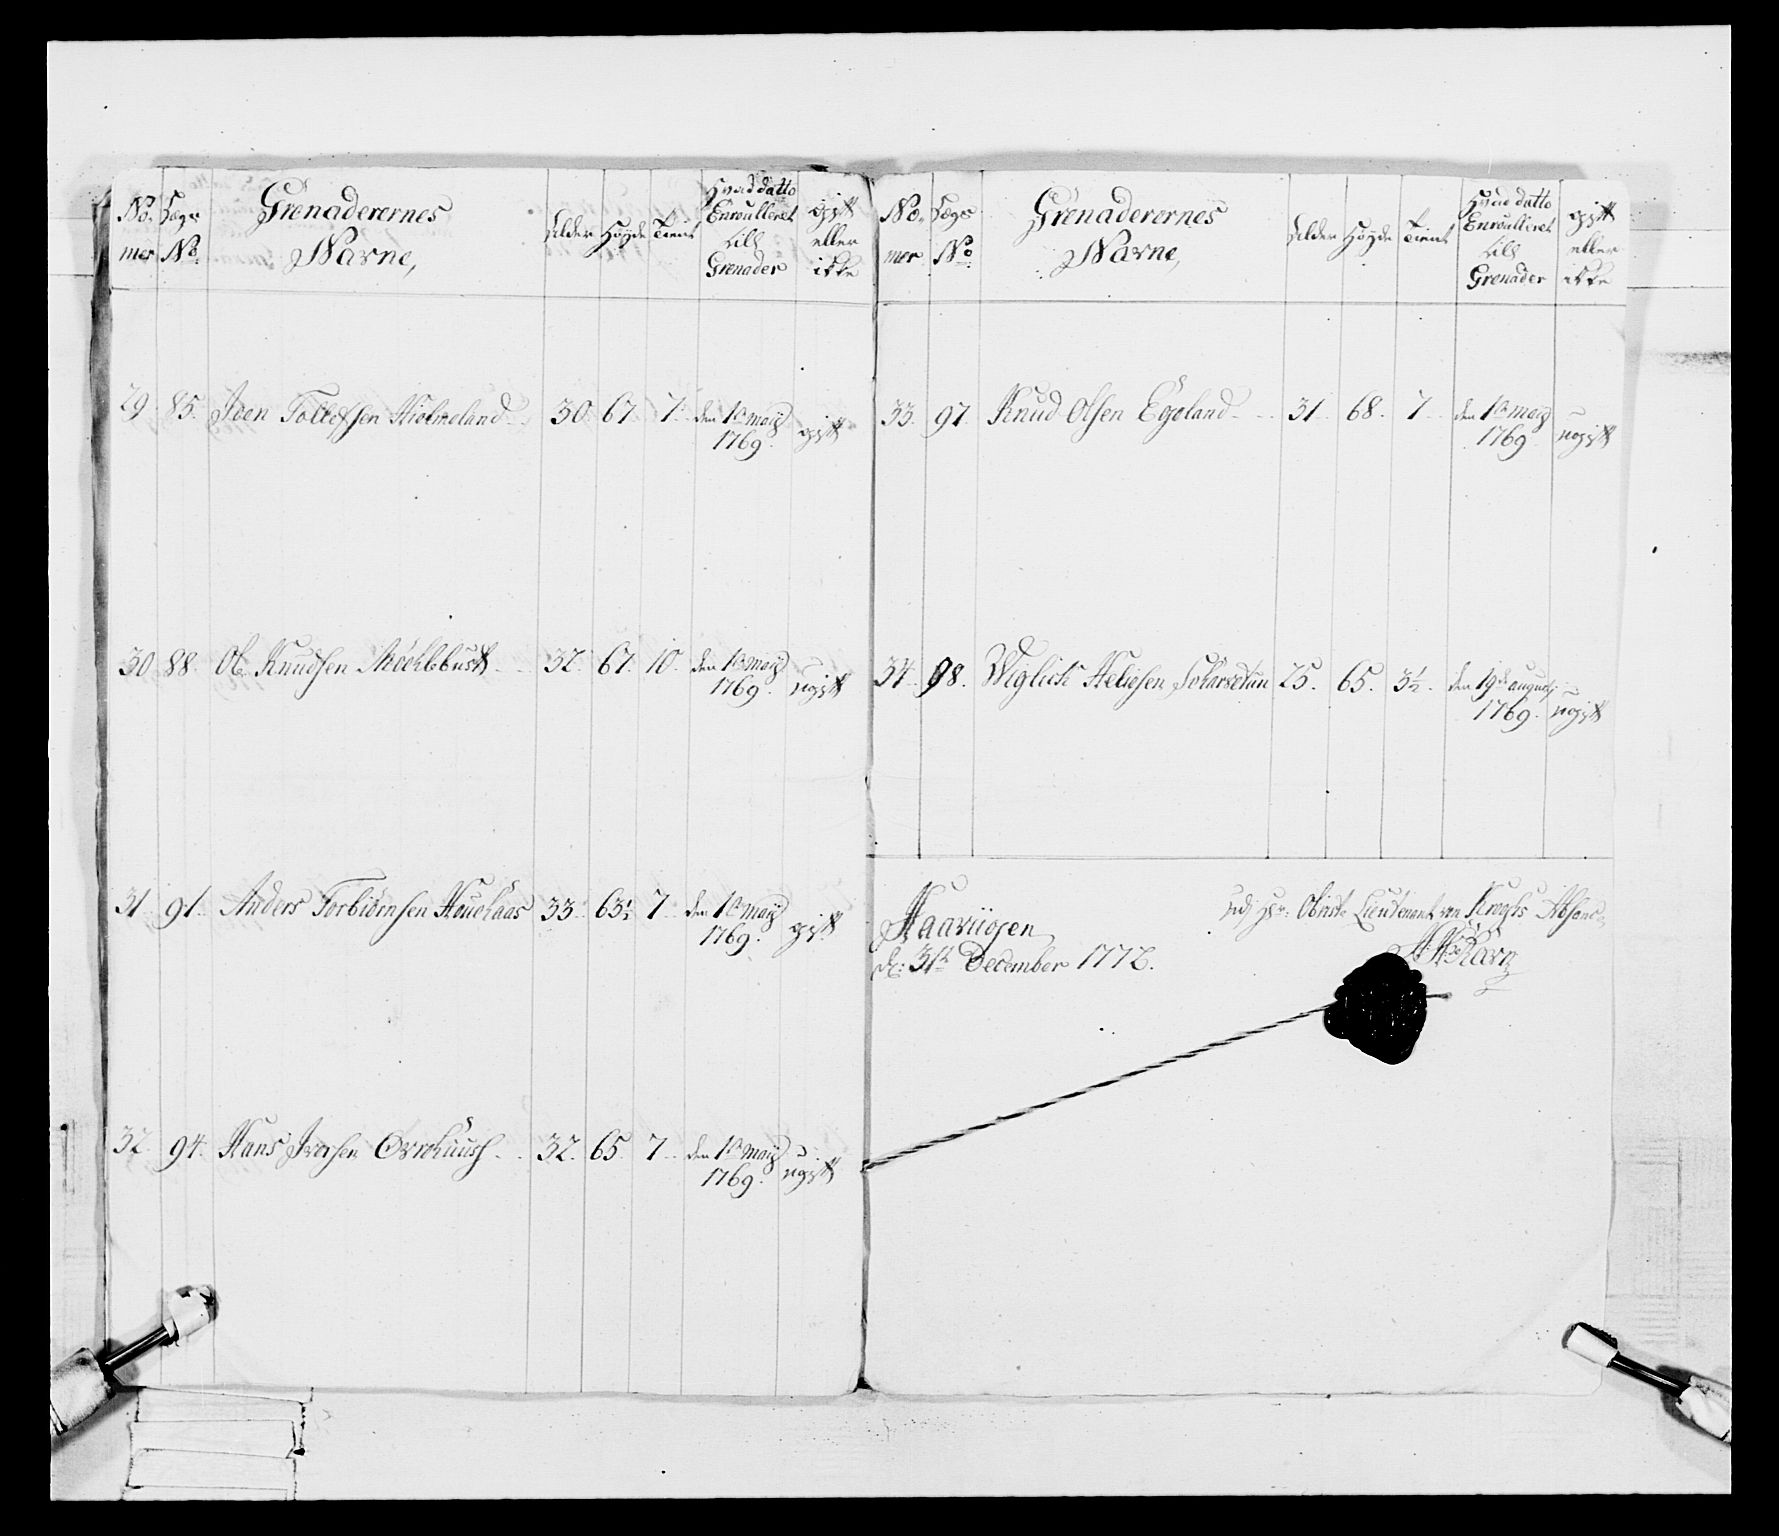 No- Lægs Grenaderernes Alder Høyde Tient Hvad datto gift
mer No. Navne, Enroulleret eller
till ikke
Grenader
29. 85. Joen Tollefsen Hielmeland 30. 67. 7. den 1te maij gift
1769.
30 88. Ole Knudsen Møchlebust 32. 67. 10. den 1te maij ugift
1769.
31 91. Anders Torbiörnsen 33. 63½ 7. den 1te maij gift
1769.
32 94. Hans Iversen 32. 65. 7. den 1te maij ugift
1769.
No- Lægs Grenaderernes Alder Høyde Tient Hvad datto gift
mer No. Navne, Enroulleret eller
till ikke
Grenader
33. 97. Knud Olsen Egeland 31. 68. 7. den 1te maij ugift
1769.
34. 98. Wiglich 25. 65. 3½. den 19de augustj ugift
1769.
udj Hr: Obrist Lieutenant von Kroghs Absence
Haaviigen
d: 31te December 1772.